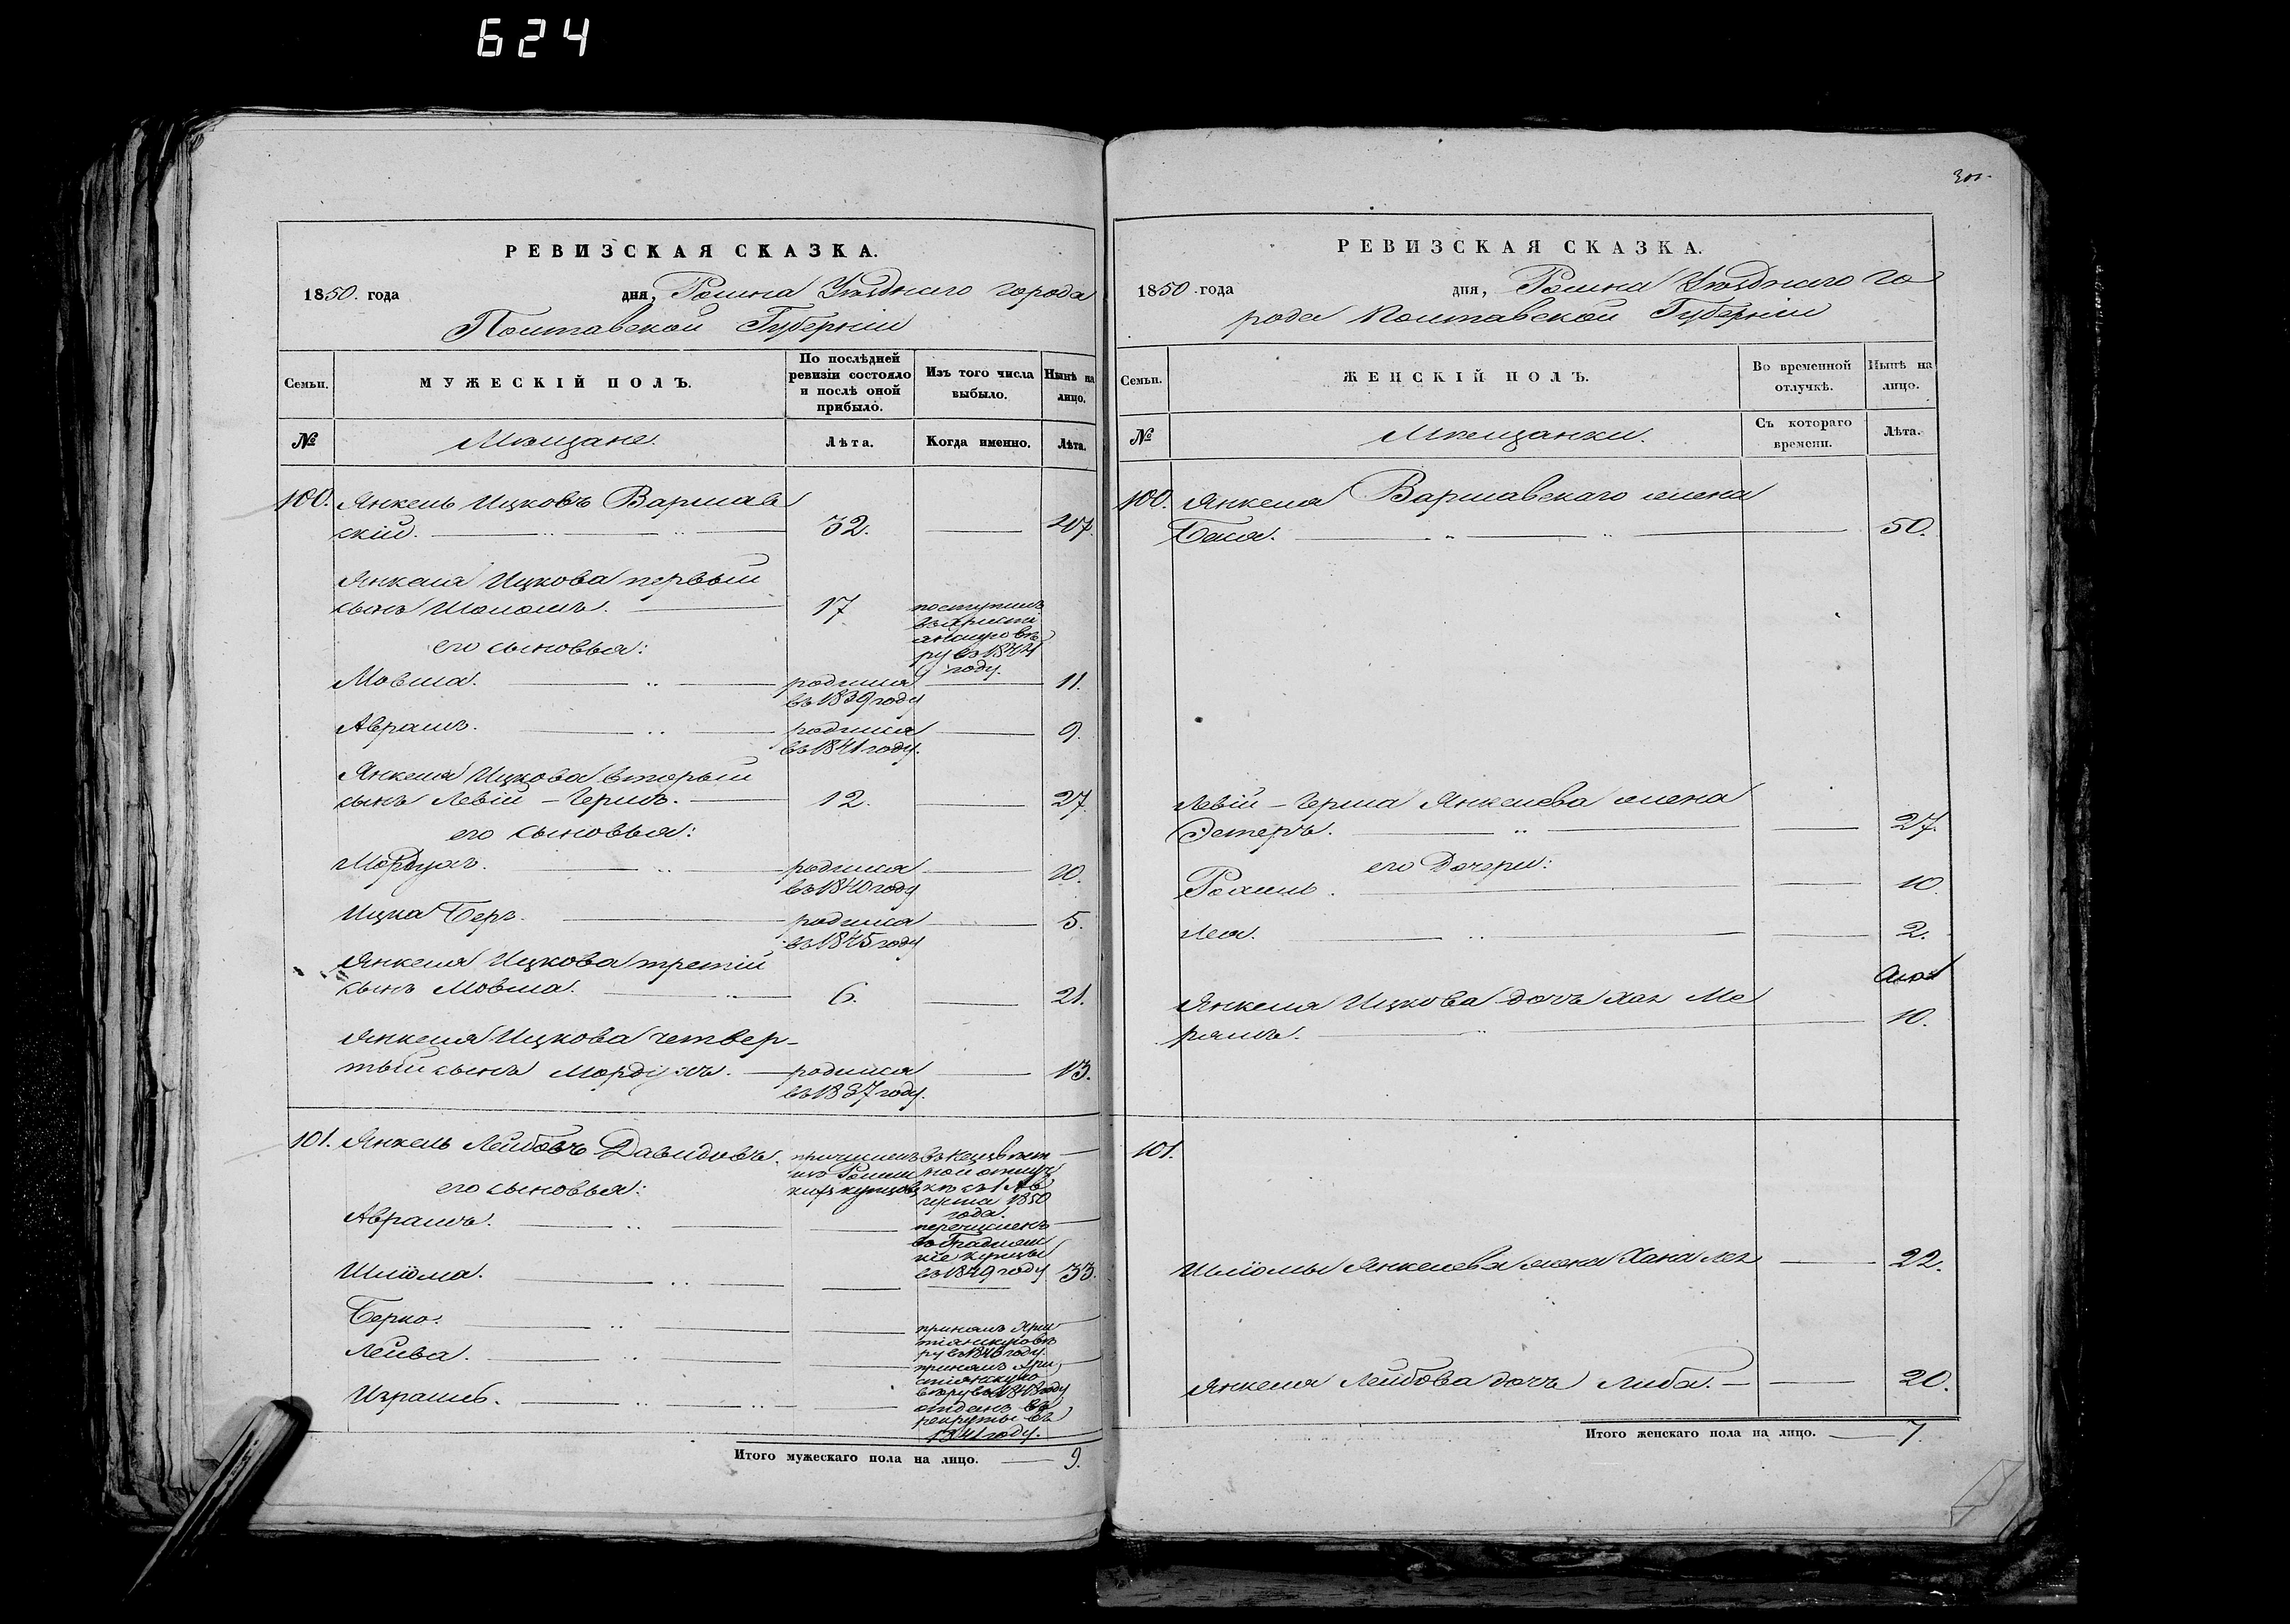 624
РЕВИЗСКАЯ СКАЗКА.
1850. года дня, Ромна Уѣзднаго города
Полтавской Губерніи
Семьи.
МУЖЕСКІЙ ПОЛЪ.
По послѣдней ревизіи состояло и послѣ оной прибыло.
Изъ того числа выбыло.
Нынѣ на лицо.
№
Мѣщане.
Лѣта.
Когда именно.
Лѣта.
100. Янкель Ицковъ Варшав
скій. 32. 47.
Янкеля Ицкова первый
сынъ Шоломъ. 17 поступилъ
въ христі
анскую вѣ
ру въ 1844
году.
его сыновья:
Мовша. родился 11.
въ 1839 году
Абрамъ. родился 9.
въ 1841 году.
Янкеля Ицкова вторый
сынъ Левій - Гершъ. 12. 27.
его сыновья:
Мордухъ. родился 10.
въ 1840 году
Ицка Беръ. родился 5.
въ 1845 году
Янкеля Ицкова третій
сынъ Мовша. 6. 21.
Янкеля Ицкова четвер-
тый сынъ Мордухъ. родился 13.
въ 1837 году.
101. Янкель Лейбовъ Давидовъ.
причисленъ
изъ Ромен
кихъ купцовъ
въ безвѣст
ной отлуч
кѣ съ 1 Ав
густа 1850
года.
его сыновья:
Абрамъ. перечисленъ
въ
купцы
въ 1849 году
Шліома. 33.
Берко. принялъ Хри
стіянскую вѣ
ру въ 1846 году.
Лейва. принялъ Хри
стіянскую
вѣру въ 1843 году
Израиль. отданъ въ
рекруты въ
1841 году.
Итого мужескаго пола на лицо. 9.
РЕВИЗСКАЯ СКАЗКА.
1850 года дня, Ромна Уѣзднаго го
рода Полтавской Губерніи
Семьи.
ЖЕНСКІЙ ПОЛЪ.
Во временной отлучкѣ.
Нынѣ на лицо.
№
Мѣщанки.
Съ котораго времени.
Лѣта.
100. Янкеля Варшавскаго жена
Бася. 50.
Левій - Герша Янкелева жена
Эстеръ. 27.
его Дочери:
Рохиль. 10
Лея. 2.
Янкеля Ицкова дочь Хая Ме
рямъ. 10.
101.
Шліомы Янкелева жена Хана Лея 22.
Янкеля Лейбова дочь Либа. 20.
Итого женскаго пола на лицо. 7.